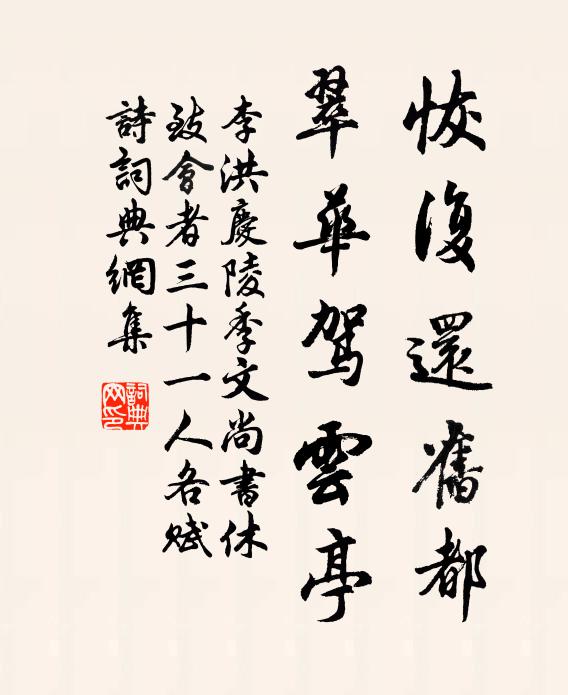 恢復還舊都
翠華駕雲亭
李洪慶陵季文尚書休
致會者三十一人各賦
詩詞典網集